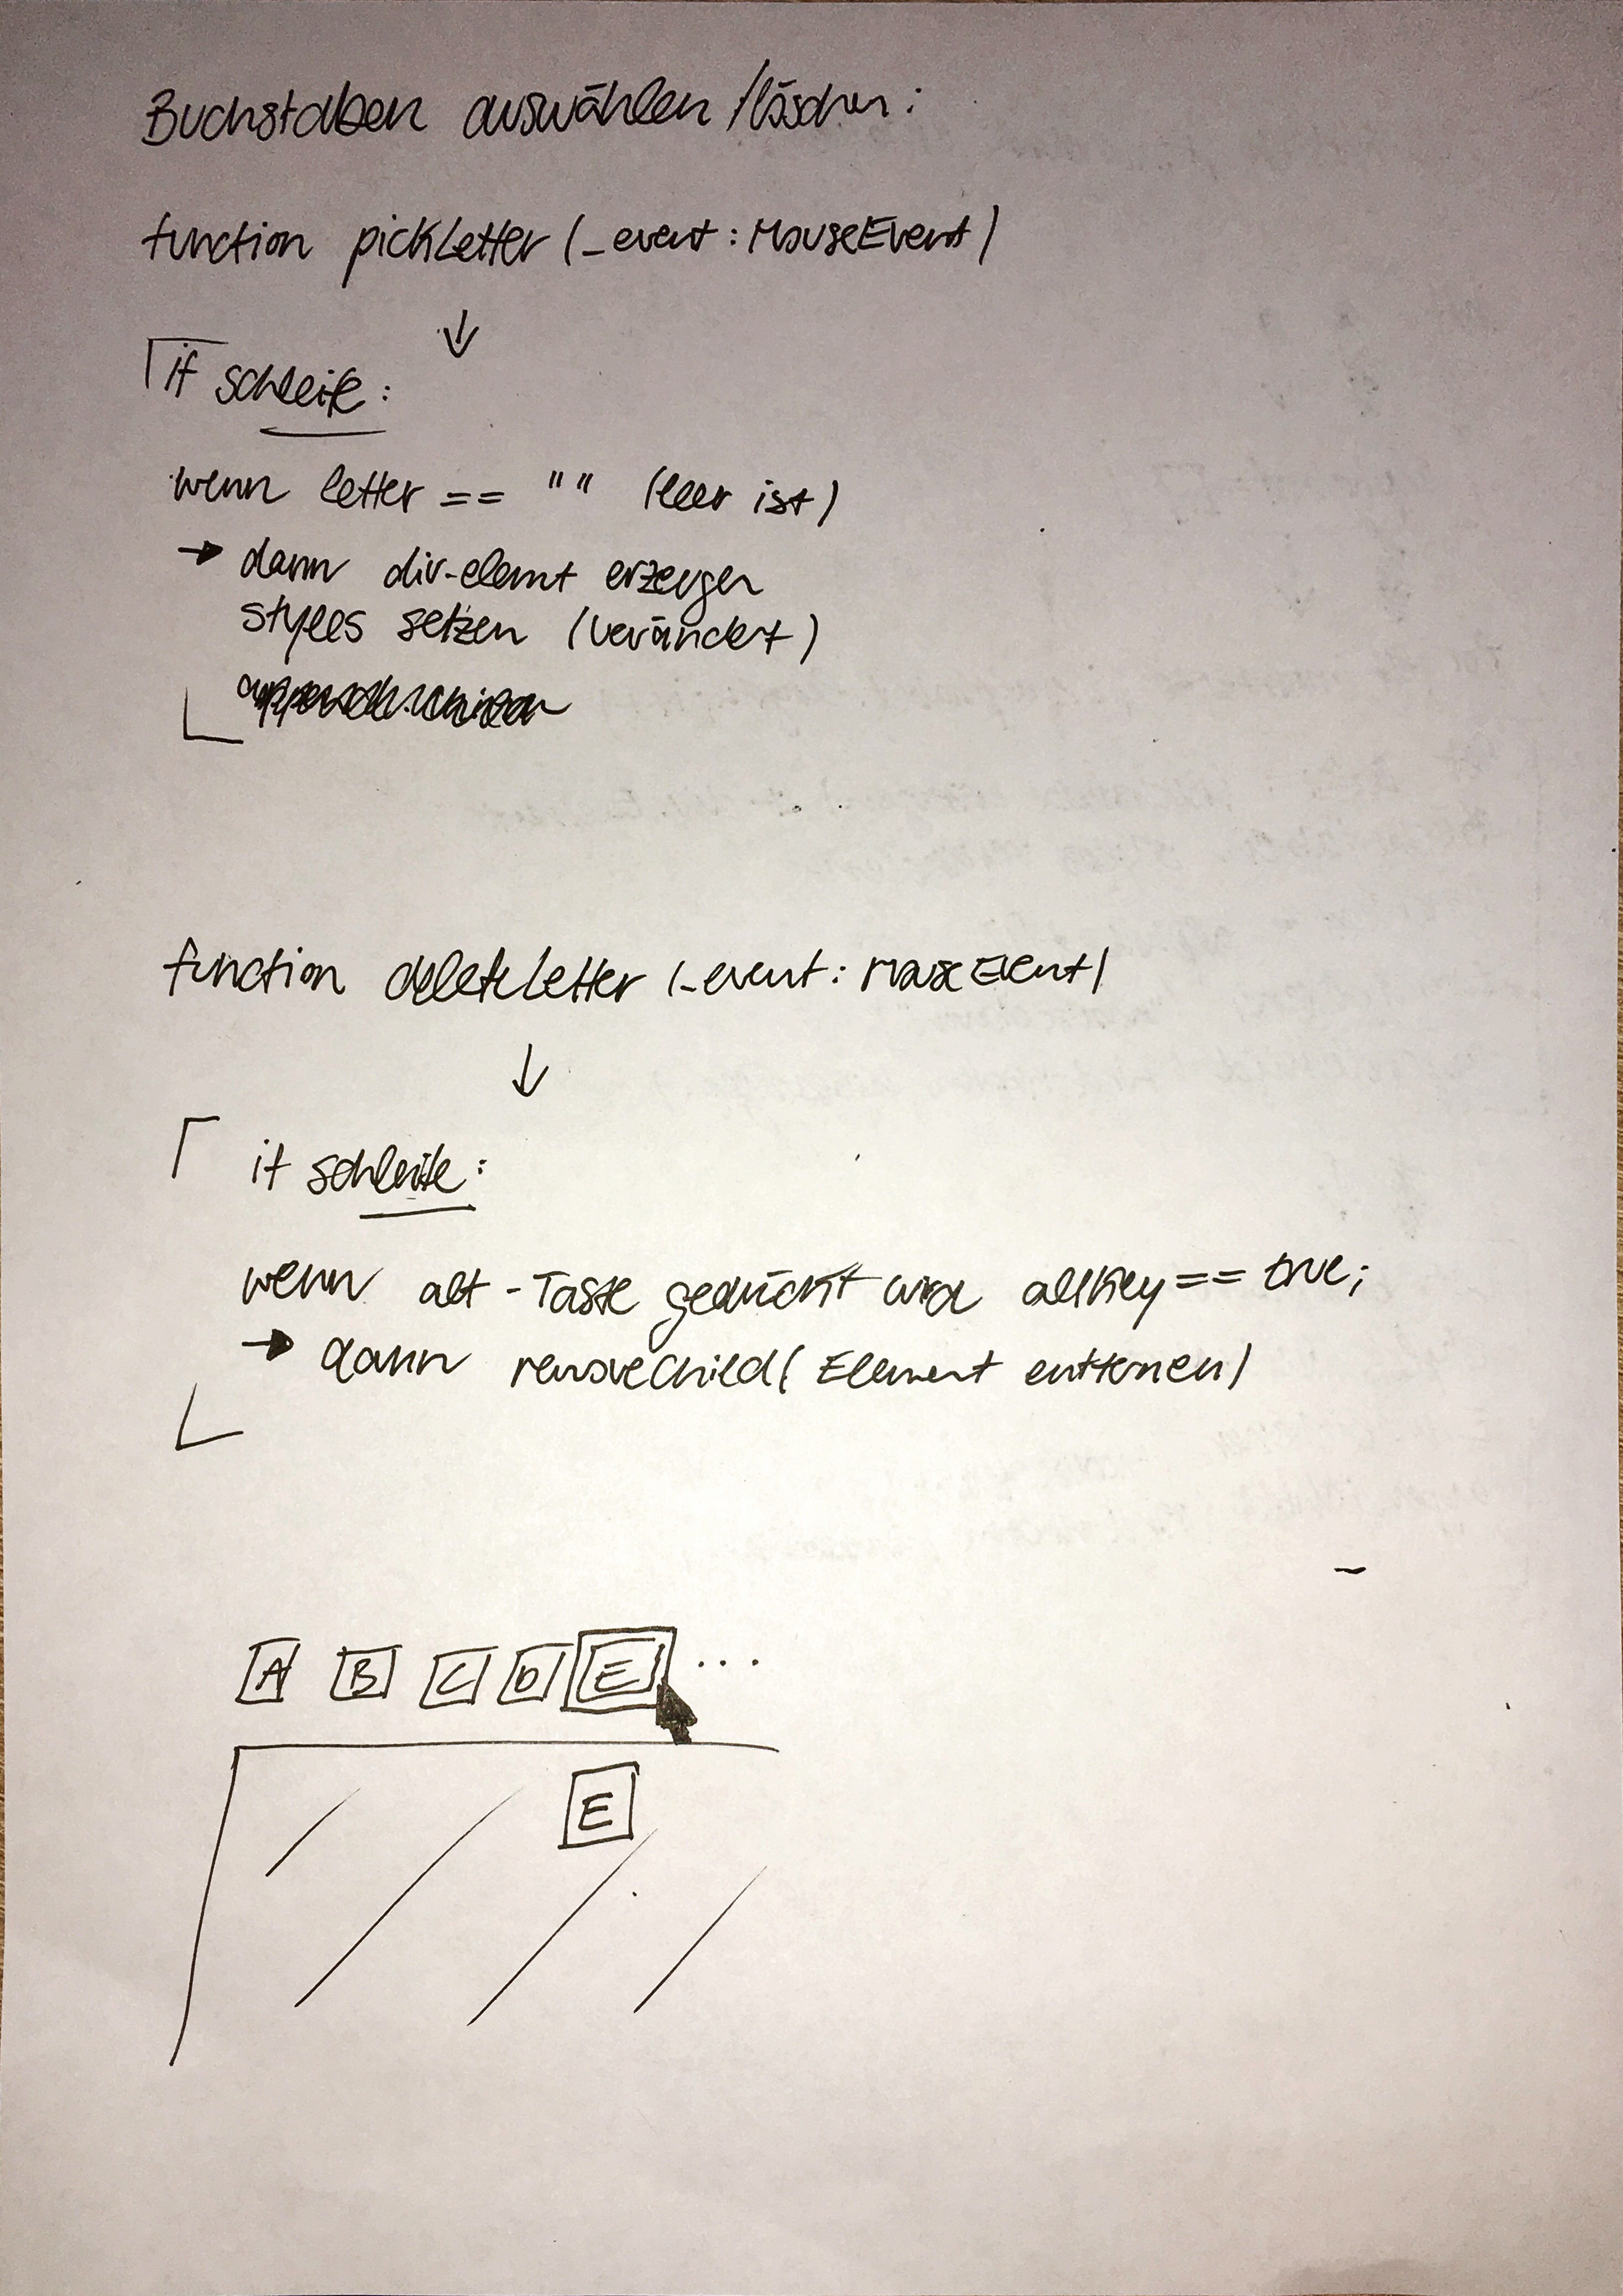 Buchstaben auswählen / löschen:
function pickLetter (_event: MouseEvent)
↓
if schleife:
wenn letter == "" (leer ist)
→ dann div-elemnt erzeugen
styles setzen (verändert)
function deleteLetter (_event: MouseEvent)
↓
if schleife:
wenn alt-Taste gedrückt wird altKey == true;
→ dann removeChild (Element entfernen)
A B C D E ...
E